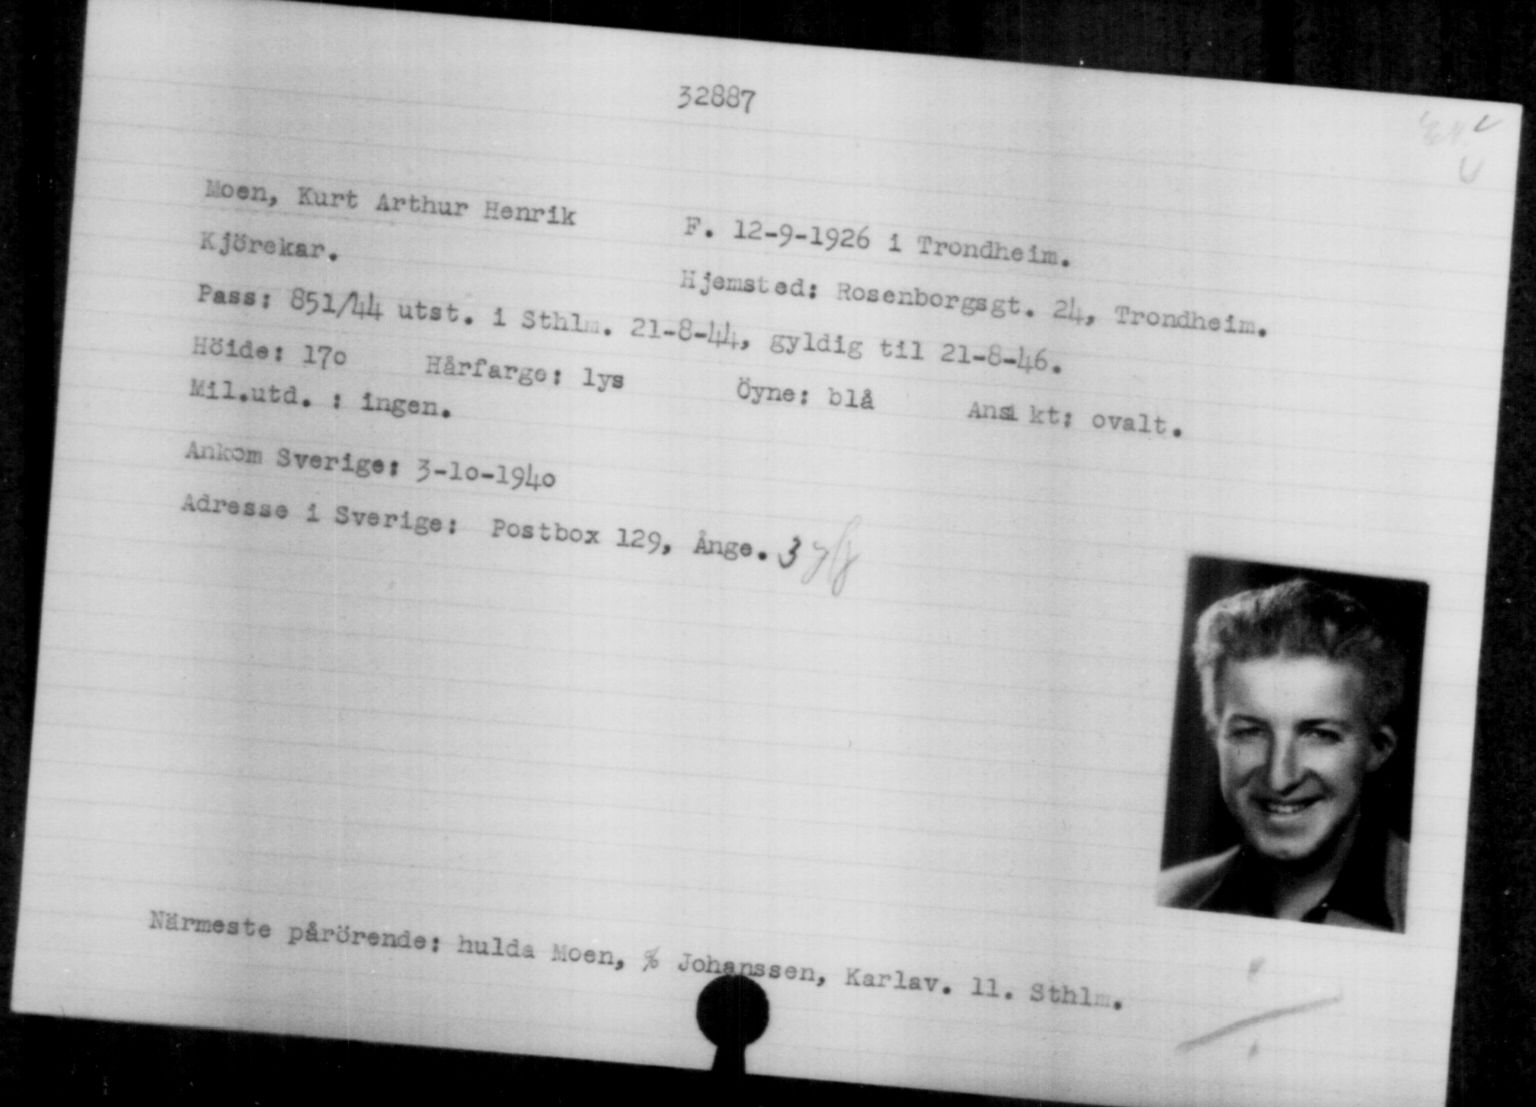 32887
Moen, Kurt Arthur Henrik F. 12-9-1926 i Trondheim.
Kjörekar. Hjemsted: Rosenborgsgt. 24, Trondheim.
Pass: 851/44 utst. i Sthlm. 21-8-44, gyldig til 21-8-46.
Höide: 170 Hårfarge: lys Öyne: blå Ansikt: ovalt.
Mil.utd. : ingen.
Ankom Sverige: 3-10-1940
Adresse i Sverige: Postbox 129, Ånge. 3
Närmeste pårörende: hulda Moen, % Johanssen, Karlav. 11. Sthlm.